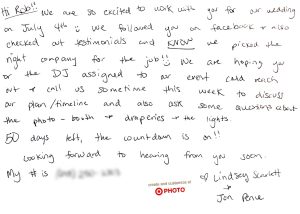 Hi Rob!! We are so excited to work with you for our wedding
on July 4th :) We followed you on facebook + also
checked out testimonials and KNOW we picked the
right company for the job!! :) We are hoping you
or the DJ assigned to our event could reach
out + call us sometime this week to discuss
our plan/timeline and also ask some questions about
the photo-booth + draperies + the lights.
50 days left, the countdown is on!!
Looking forward to hearing from you soon.
My # is
♡ Lindsey Scarlett
+
Jon
create and customize at
PHOTO